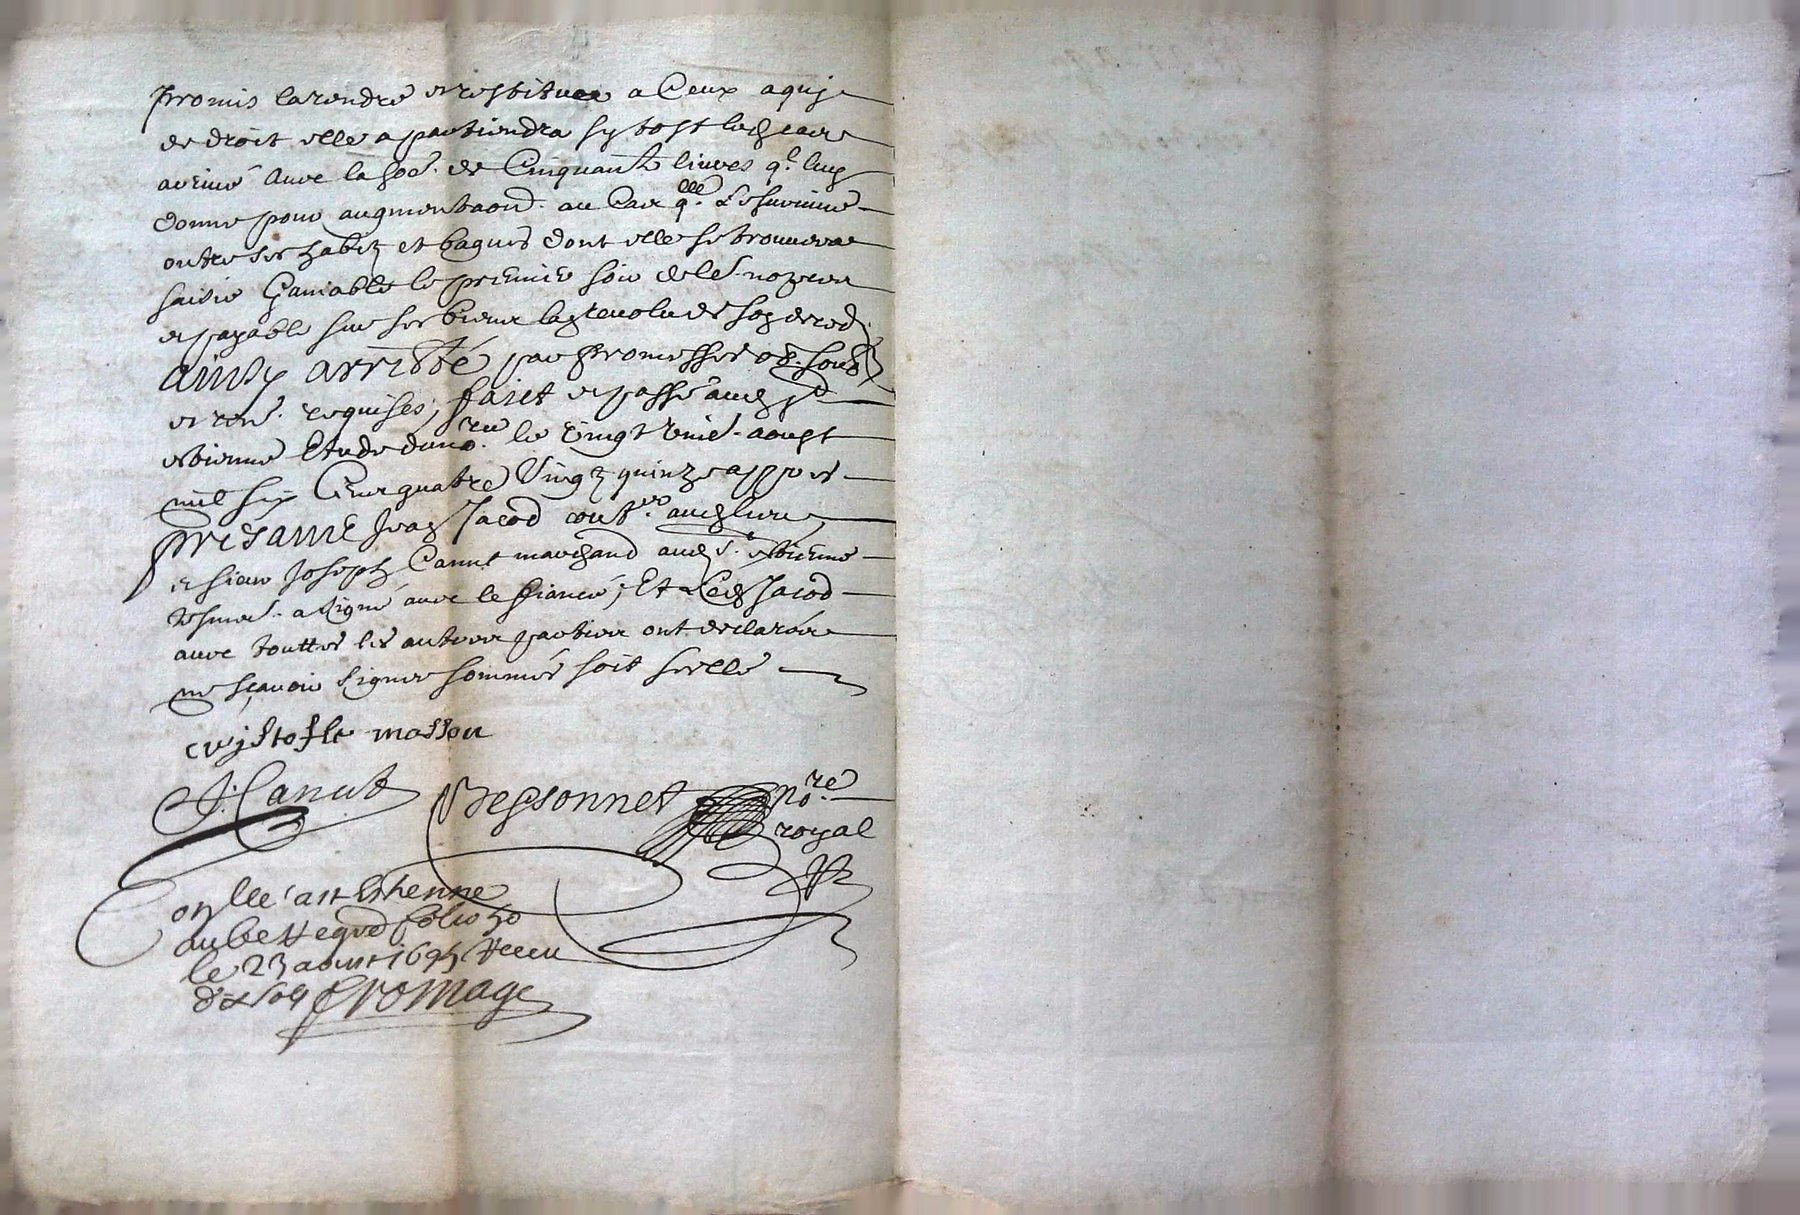 promis la rendre et restituer a Ceux a qui
de droit elle apartiendra sy tost led cas
avenu avec la so͞e de Cinquante livres q.l luy
donne pour augmentaõn au Cas q.lle le survive
outre ses habitz et bagues dont elle se trouvera
saisie ganiable le premier soir de les. nopces
et payable sur ses biens
ainsy arresté par promesses
et ren. requises, faict et passé aud S.t
estienne Etude du no.re le vingt aoust
mil six Cens quatre Vingz quinze appres
presance Jean Jacod
et sieur Joseph Canut marchand aud S.t estienne
tesmo. a signé avec le fiancé; Et led Jacod
avec touttes les autres parties ont declarées
ne sçavoir signer sommés soit seellé
cristofle masson
J. Canut Bessonnet no.re
royal
onlle a st Ethenne
au be Regre folio 50
le 23 aout 1695 Receu
sols fromage